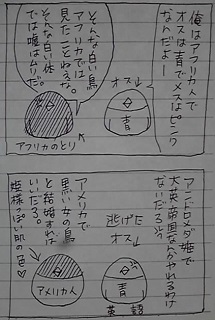 俺はアフリカ人で
オスは青でメスはピンク
なんだよー
オス↓
青
そんな白い鳥
アフリカでは
見たことねぇな。
そんな白い体
では嘘はムリだ。
アフリカのとり
アンドロメダ姫で
大英帝国なんかやれるわけ
ないだろう
逃げた
オス↓
青
英語
アメリカで
黒い女の鳥
と結婚すれば
いいだろ。
姫様っぽい肌の色♡
アメリカ人